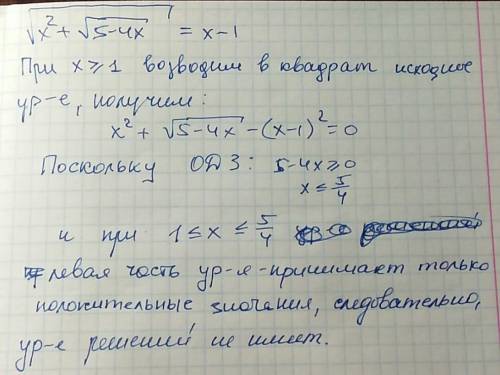 √(x² + √(5-4x)) = x-1
При x ⩾ 1 возводим в квадрат исходное
ур-е, получим:
x² + √(5-4x) - (x-1)² = 0
Поскольку ОДЗ: 5-4x ⩾ 0
x ≤ 5/4
и при 1 ≤ x ≤ 5/4
левая часть ур-я - принимает только
положительные значения, следовательно,
ур-е решений не имеет.